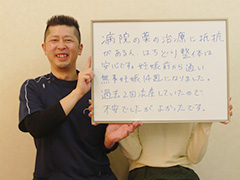 病院の薬の治療に抵抗
がある人 はろという整体は
安心です。妊娠前から通い
無事妊娠14週になりました。
過去2回流産していたので
不安でしたがよかったです。